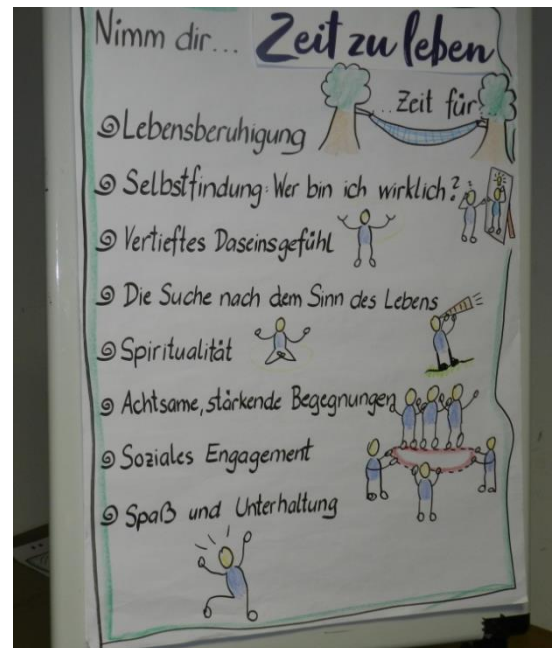 Nimm dir... Zeit zu leben
...Zeit für:
Lebensberuhigung
Selbstfindung: Wer bin ich wirklich?
Vertieftes Daseinsgefühl
Die Suche nach dem Sinn des Lebens
Spiritualität
Achtsame, stärkende Begegnungen
Soziales Engagement
Spaß und Unterhaltung